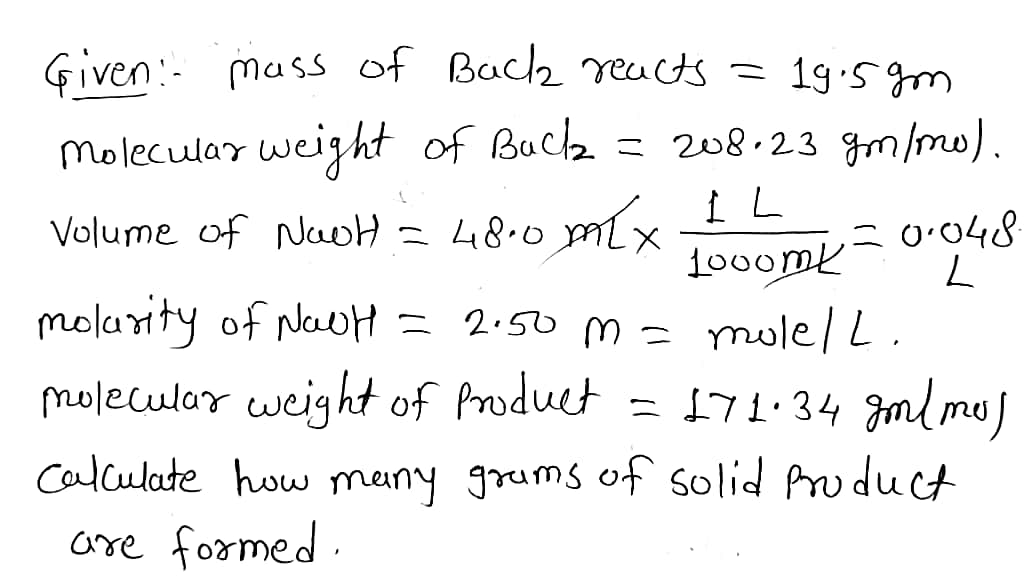 Given:- mass of BaCl2 reacts = 19.5 gm
molecular weight of BaCl2 = 208.23 gm/mol.
Volume of NaOH = 48.0 mL x 1 L / 1000 mL = 0.048 L
molarity of NaOH = 2.50 M = mole/L.
molecular weight of Product = 171.34 gm/mol
Calculate how many grams of solid Product
are formed.